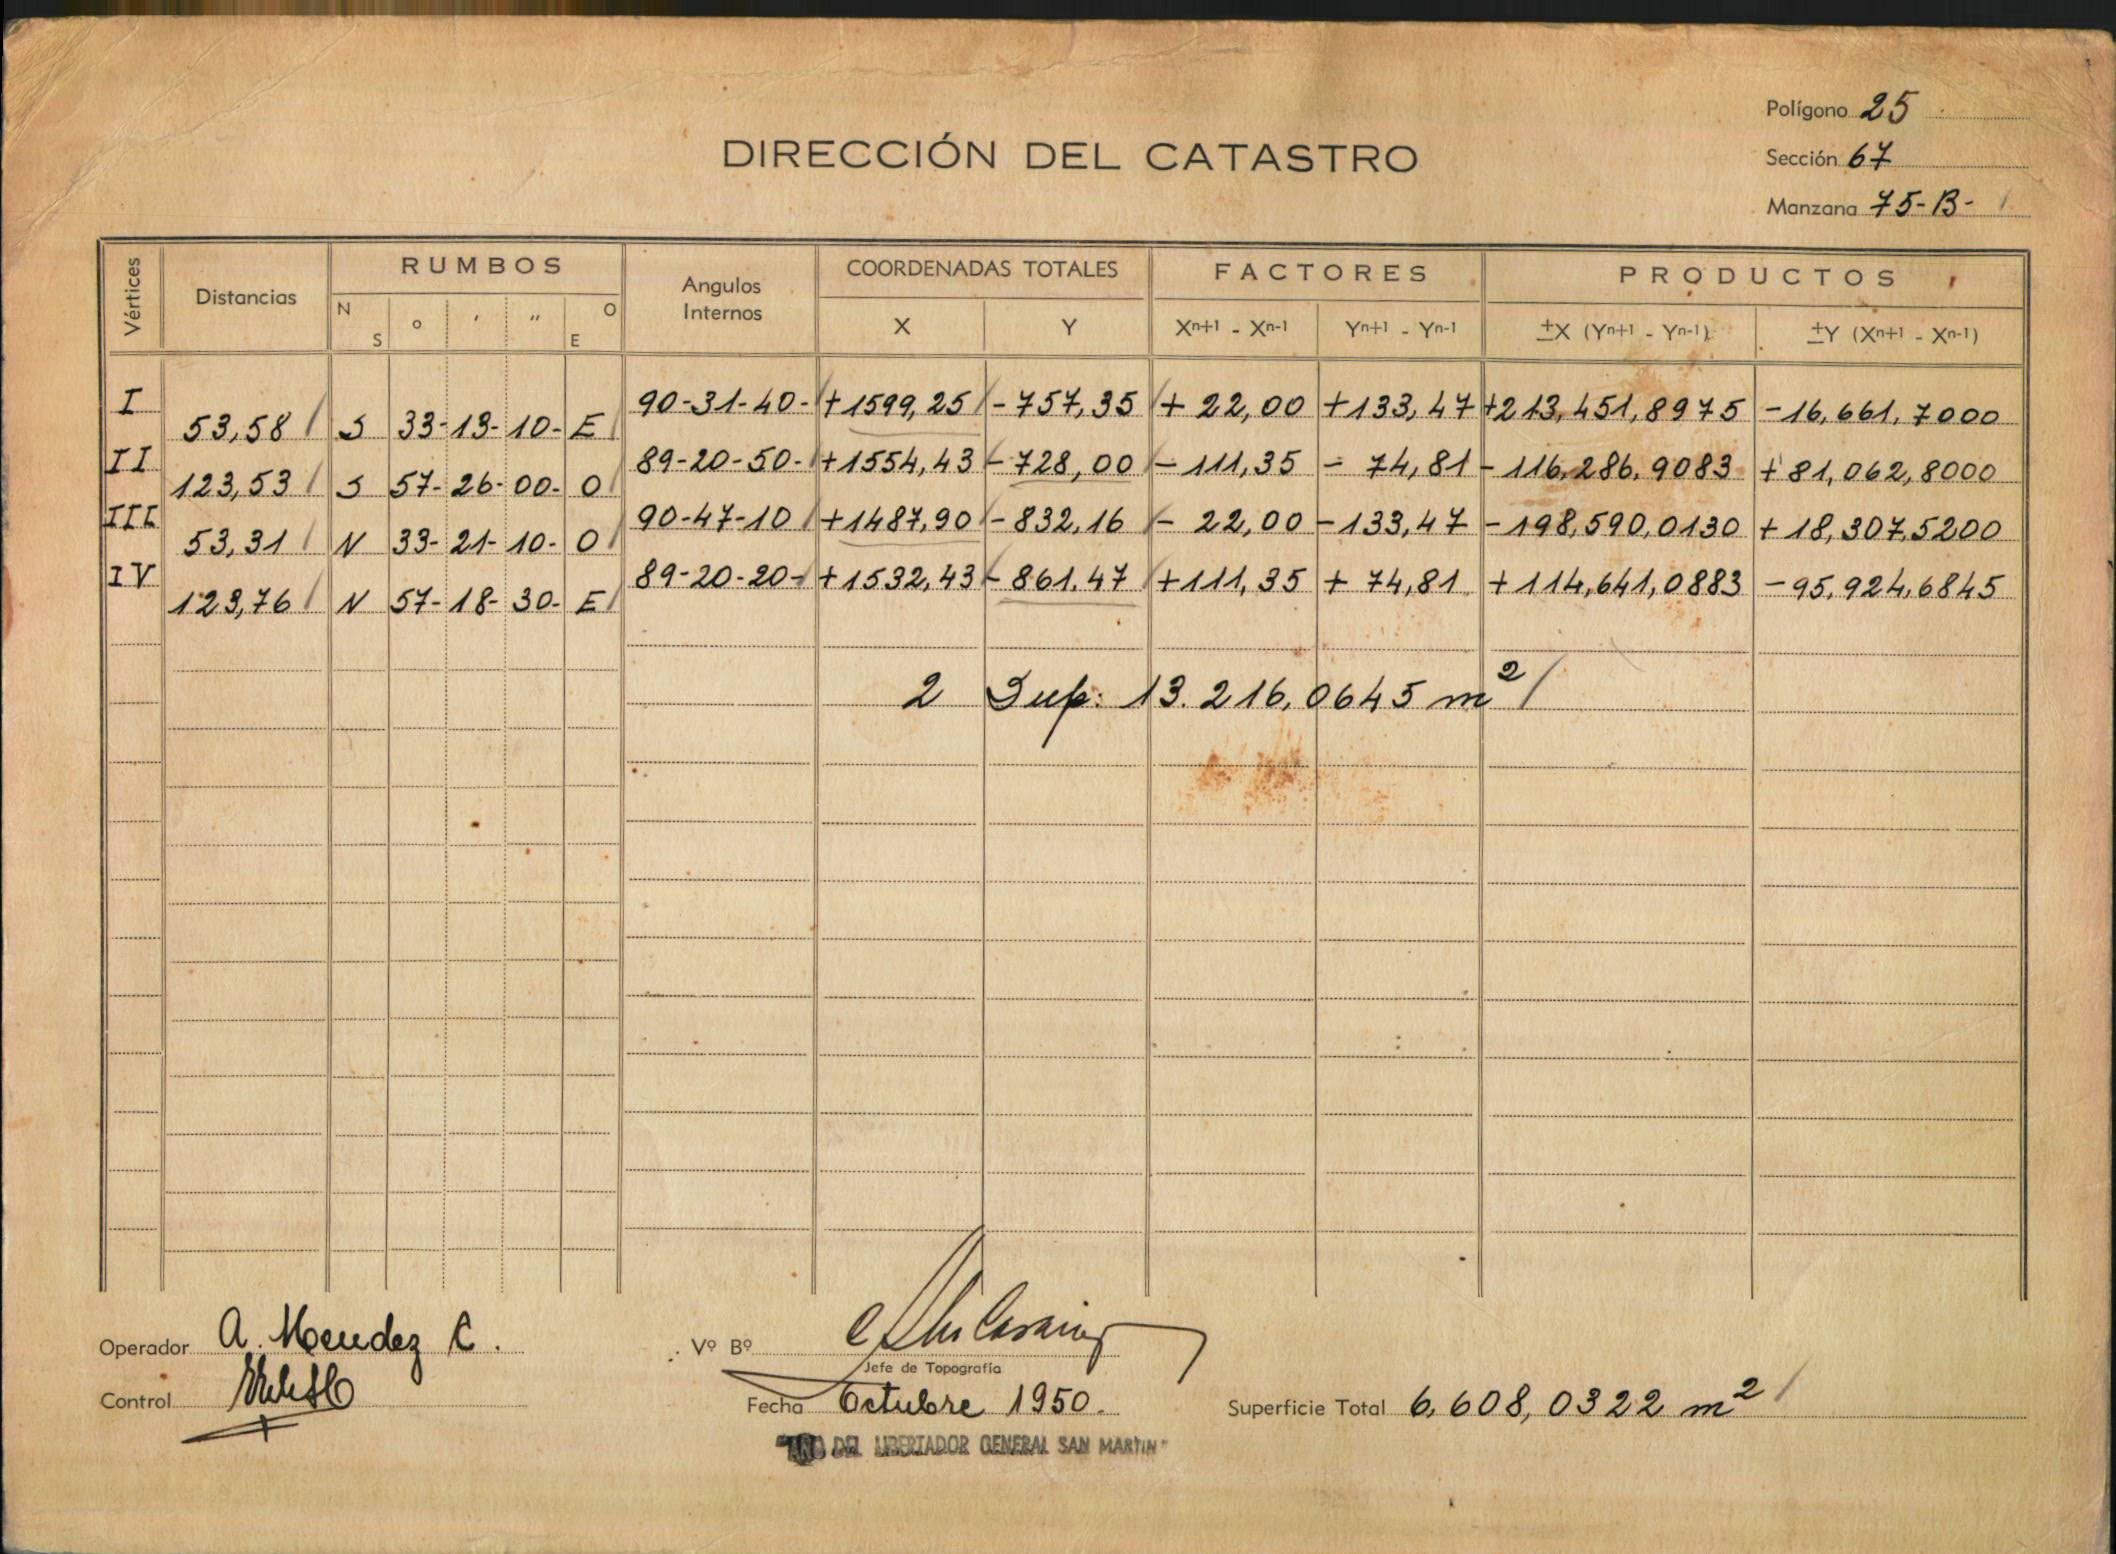 Polígono 25
DIRECCIÓN DEL CATASTRO
Sección 67
Manzana 75-B-
Vértices Distancias RUMBOS Angulos Internos COORDENADAS TOTALES FACTORES PRODUCTOS
N S o ' " O E X Y Xn+1 - Xn-1 Yn+1 - Yn-1 ±X (Yn+1 - Yn-1) ±Y (Xn+1 - Xn-1)
I 90-31-40- +1599,25 -757,35 + 22,00 +133,47 +213,451,8975 -16,661,7000
53,58 S 33-13-10- E
II 89-20-50- +1554,43 -728,00 -111,35 - 74,81 -116,286,9083 +81,062,8000
123,53 S 57-26-00- O
III 90-47-10 +1487,90 -832,16 - 22,00 -133,47 -198,590,0130 +18,307,5200
53,31 N 33-21-10- O
IV 89-20-20- +1532,43 -861,47 +111,35 + 74,81 +114,641,0883 -95,924,6845
123,76 N 57-18-30- E
2 Sup: 13.216,0645 m²
Operador A. Mendez C.
Vº Bº
Jefe de Topografía
Control
Fecha Octubre 1950.
Superficie Total 6,608,0322 m²
DEL LIBERTADOR GENERAL SAN MARTIN"